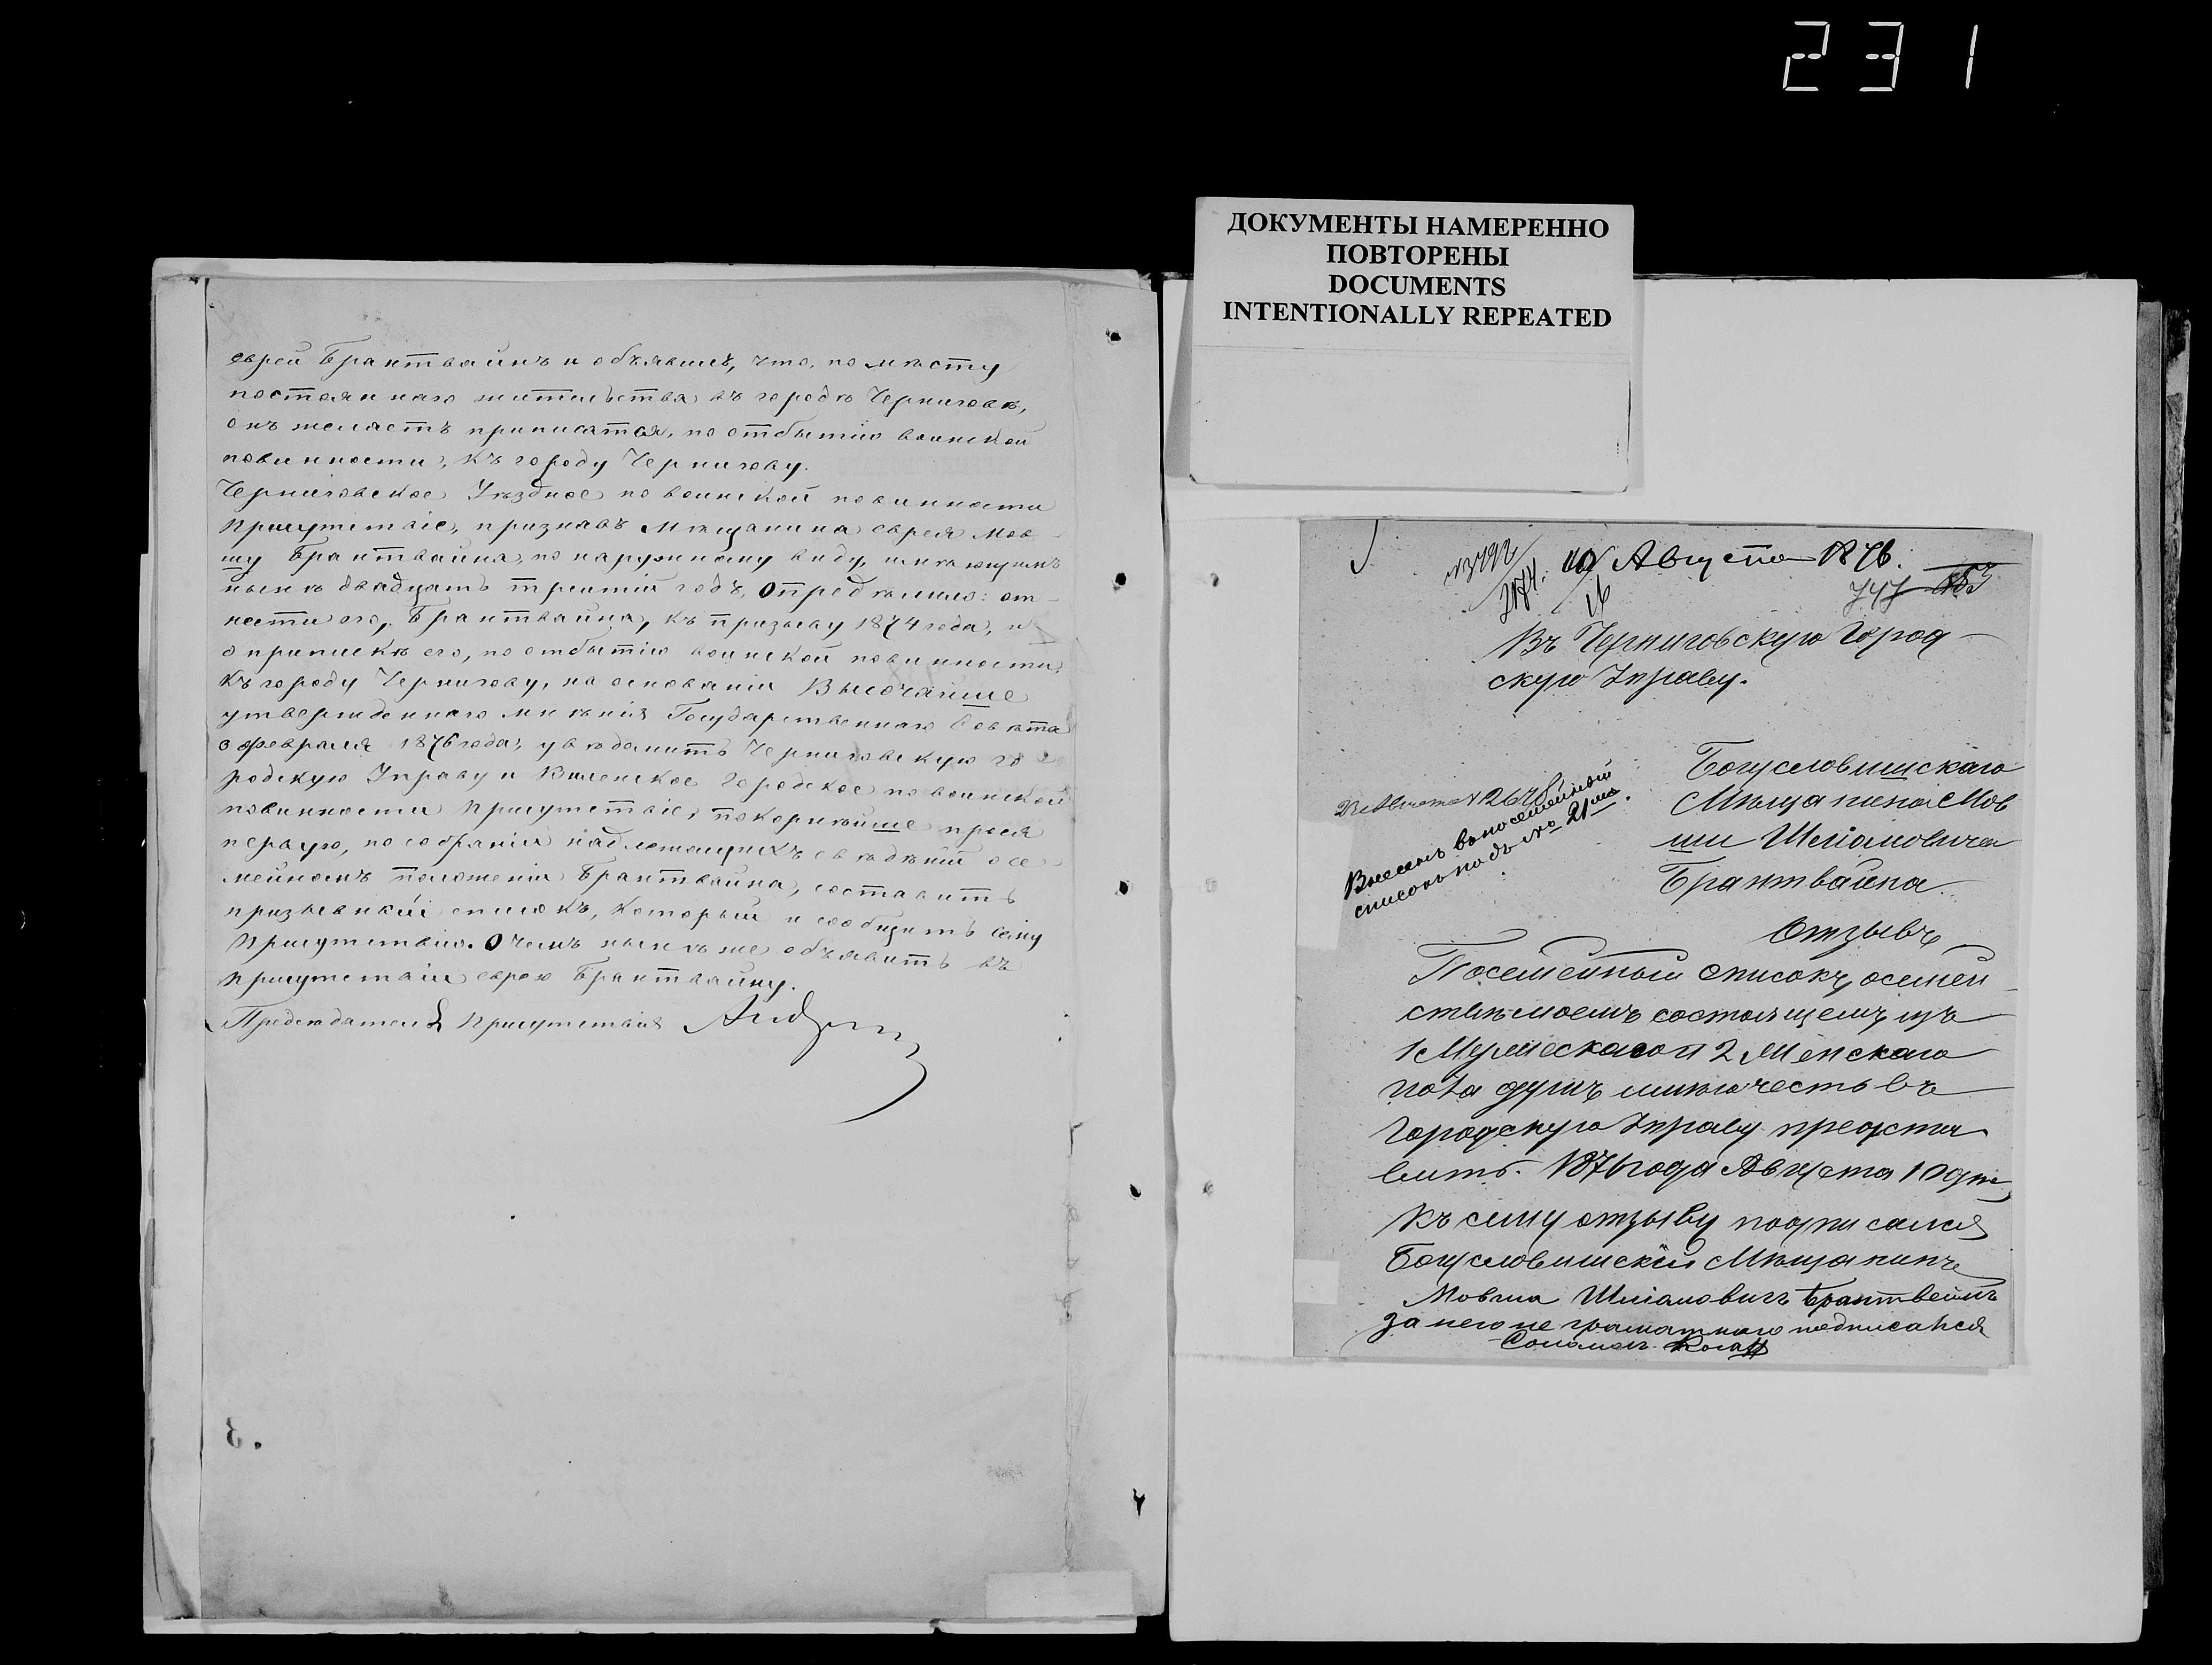 231
ДОКУМЕНТЫ НАМЕРЕННО
ПОВТОРЕНЫ
DOCUMENTS
INTENTIONALLY REPEATED
еврей Брантвайнъ и объявилъ, что, по мѣсту
постояннаго жительства въ городѣ Черниговѣ,
онъ желаетъ приписатся, по отбытію воинской
повинности, къ городу Чернигову.
Черниговское Уѣздное по воинской повинности
Присутствіе, признавъ мѣщанина еврея Мов
шу Брантвайна, по наружному виду, имѣющимъ
нынѣ двадцать третій годъ, опредѣлило: от-
нести его, Брантвайна, къ призыву 1874 года, и
о припискѣ его, по отбытію воинской повинности,
къ городу Чернигову, на основаніи Высочайше
утвержденнаго мнѣнія Государственнаго Совѣта
3 февраля 1876 года, увѣдомить Черниговскую го
родскую Управу и Виленское Городское по воинской
повинности Присутствіе, покорнѣйше прося
первую, по собраніи надлежащихъ свѣдѣній о се
мейномъ положеніи Брантвайна, составить
призывной списокъ, который и сообщить сему
Присутствію. О чемъ нынѣ же объявить въ
присутствіи еврею Брантвайну.
Предсѣдатель Присутствія
10 Августа 1876.
16
747
Въ Черниговскую Город-
скую Управу.
Богуславишскаго
Мѣщанина Мов
ши Шліомовича
Брантвайна
Отзывъ
Внесенъ въ посемейный
списокъ подъ № 21мъ.
Посемейный списокъ о семей
ствѣ моемъ состоящемъ изъ
1 Мужескаго и 2 Женскаго
пола душъ имѣю честь въ
Городскую Управу предста
вить. 1876 года Августа 10 дня
Къ сему отзыву подписался
Богуславишскій Мѣщанинъ
Мовша Шліомовичъ Брантвейнъ
за него не грамотнаго подписался
Соломонъ Коган